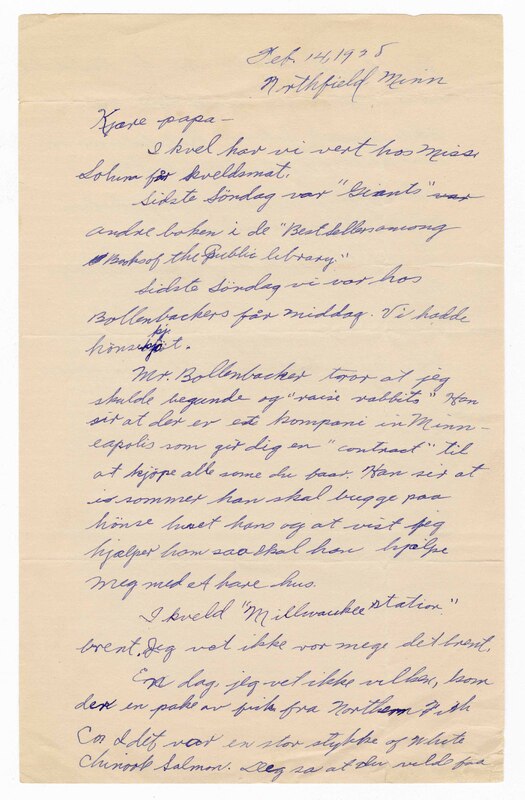 Feb. 14, 1928
Northfield Minn
Kjære papa-
I kvel har vi vert hos Miss
Solum før kveldsmat.
Sidste Söndag var "Giants" var
andre boken i de "Best Sellers among
Books of the Public library."
Sidste Söndag vi var hos
Bollenbackers før middag. Vi hadde
hönsekjöt.
Mr. Bollenbacker tror at jeg
skulde begynde og "raise rabbits" Han
sir at der er et kompani in Minn-
eapolis som gir dig en "contract" til
at kjöpe alle some du faar. Han sir at
i sommer han skal bugge paa
hönse huset hans og at vist jeg
hjælper ham saa skal han hjælpe
meg med et hare hus.
I kveld "Millwaukee Station"
brent. Jeg vet ikke vor mege det brent.
En dag, jeg vet ikke vilken, kom
der en pake av fisk fra Northern Fish
Co. I det var en stor stykke of White
Chinook Salmon. Deg sa at du vilde faa